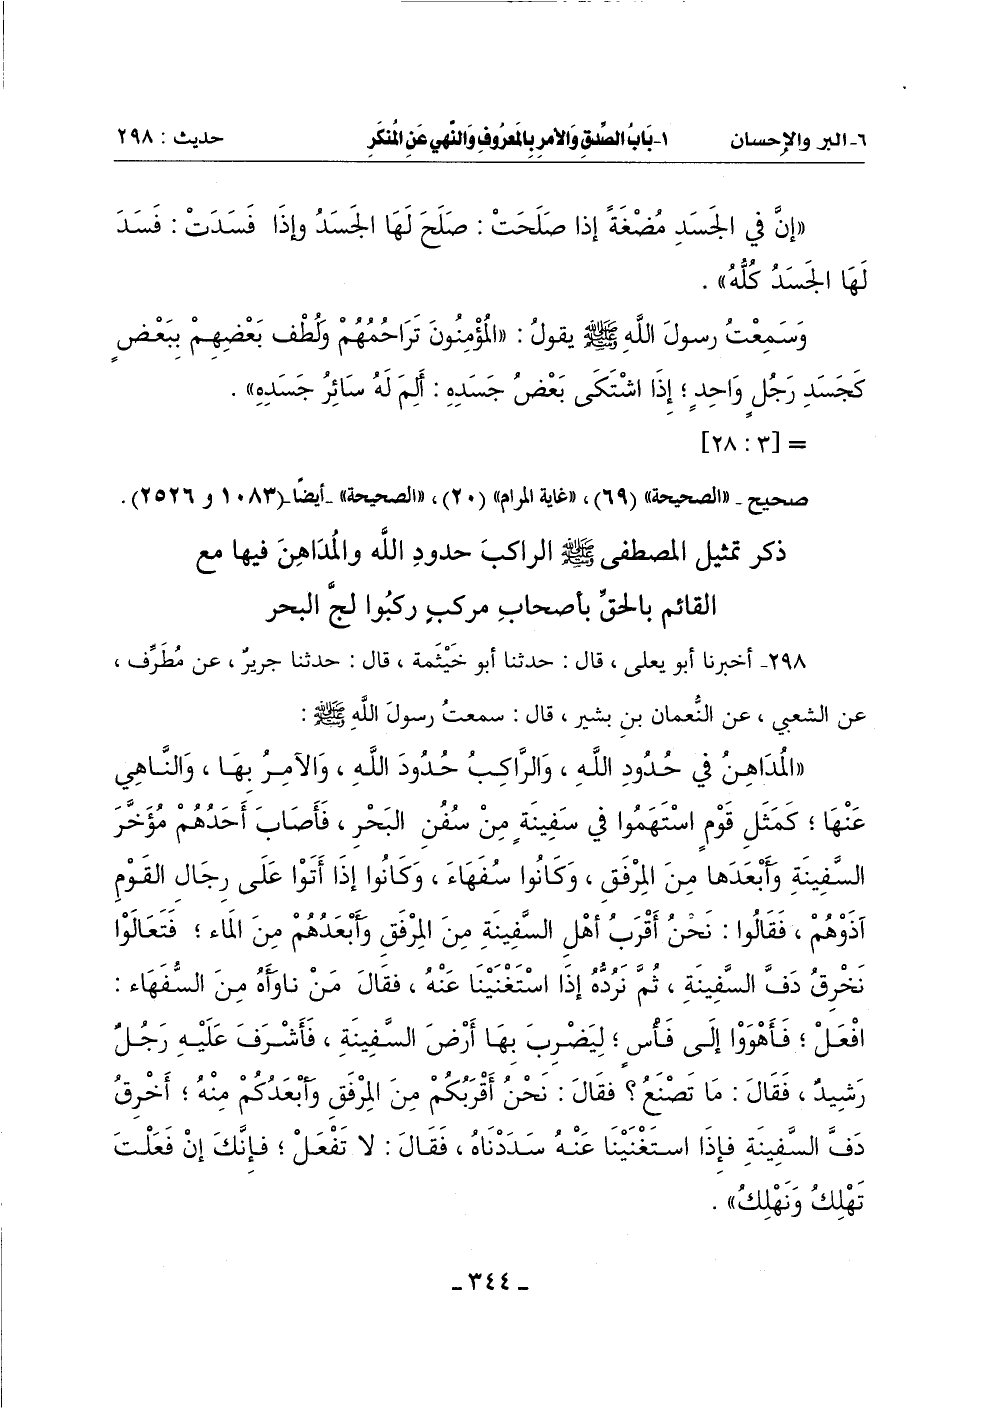 ٦ـ البر والإحسان ١ـ بَابُ الصِّدقِ وَالأمرِ بِالمَعرُوفِ وَالنَّهي عَنِ المُنكَرِ حديث : ٢٩٨
«إنَّ في الجَسَدِ مُضْغَةً إذا صَلَحَتْ : صَلَحَ لَهَا الجَسَدُ وإذَا فَسَدَتْ : فَسَدَ
لَهَا الجَسَدُ كُلُّهُ» .
وَسَمِعْتُ رسولَ اللَّهِ ﷺ يقولُ : «المُؤْمِنُونَ تَرَاحُمُهُمْ وَلُطْف بَعْضِهِمْ بِبَعْضٍ
كَجَسَدِ رَجُلٍ وَاحِدٍ ؛ إذَا اشْتَكَى بَعْضُ جَسَدِهِ : أَلِمَ لَهُ سَائِرُ جَسَدِهِ» .
= [٣ : ٢٨]
صحيح ـ «الصحيحة» (٦٩) ، «غاية المرام» (٢٠) ، «الصحيحة» ـ أيضًا ـ (١٠٨٣ و ٢٥٢٦) .
ذكر تمثيل المصطفى ﷺ الراكبَ حدودِ اللَّه والمُدَاهِنَ فيها مع
القائم بالحقِّ بأصحابِ مركبٍ ركبُوا لجَّ البحر
٢٩٨ـ أخبرنا أبو يعلى ، قال : حدثنا أبو خَيْثَمة ، قال : حدثنا جريرٌ ، عن مُطَرِّف ،
عن الشعبي ، عن النُّعمان بن بشير ، قال : سمعتُ رسولَ اللَّهِ ﷺ :
«المُدَاهِنُ في حُدُودِ اللَّهِ ، وَالرَّاكِبُ حُدُودَ اللَّهِ ، وَالآمِرُ بِهَا ، وَالنَّاهِي
عَنْهَا ؛ كَمَثَلِ قَوْمٍ اسْتَهَمُوا في سَفِينَةٍ مِنْ سُفُنِ البَحْرِ ، فَأَصَابَ أَحَدُهُمْ مُؤَخَّرَ
السَّفِينَةِ وَأَبْعَدَها مِنَ المِرْفَقِ ، وَكَانُوا سُفَهَاءَ ، وَكَانُوا إذَا أَتَوْا عَلَى رِجَالِ القَوْمِ
آذَوْهُمْ ، فَقَالُوا : نَحْنُ أَقْرَبُ أهْلِ السَّفِينَةِ مِنَ المِرْفَقِ وَأَبْعَدُهُمْ مِنَ المَاءِ ؛ فَتَعَالَوْا
نَخْرِقُ دَفَّ السَّفِينَةِ ، ثُمَّ نَرُدُّهُ إذَا اسْتَغْنَيْنَا عَنْهُ ، فقَالَ مَنْ ناوَأَهُ مِنَ السُّفَهَاءِ :
افْعَلْ ؛ فَأَهْوَوْا إلَى فَأْسٍ ؛ لِيَضْرِبَ بِهَا أَرْضَ السَّفِينَةِ ، فَأَشْرَفَ عَلَيْهِ رَجُلٌ
رَشِيدٌ ، فَقَالَ : مَا تَصْنَعُ ؟ فقالَ : نَحْنُ أَقْرَبُكُمْ مِنَ المِرْفَقِ وَأَبْعَدُكُمْ مِنْهُ ؛ أَخْرِقُ
دَفَّ السَّفِينَةِ فإذَا استَغْنَيْنَا عَنْهُ سَدَدْنَاهُ ، فَقَالَ : لا تَفْعَلْ ؛ فإنَّكَ إنْ فَعَلْتَ
تَهْلِكُ وَنَهْلِكُ» .
ـ ٣٤٤ ـ